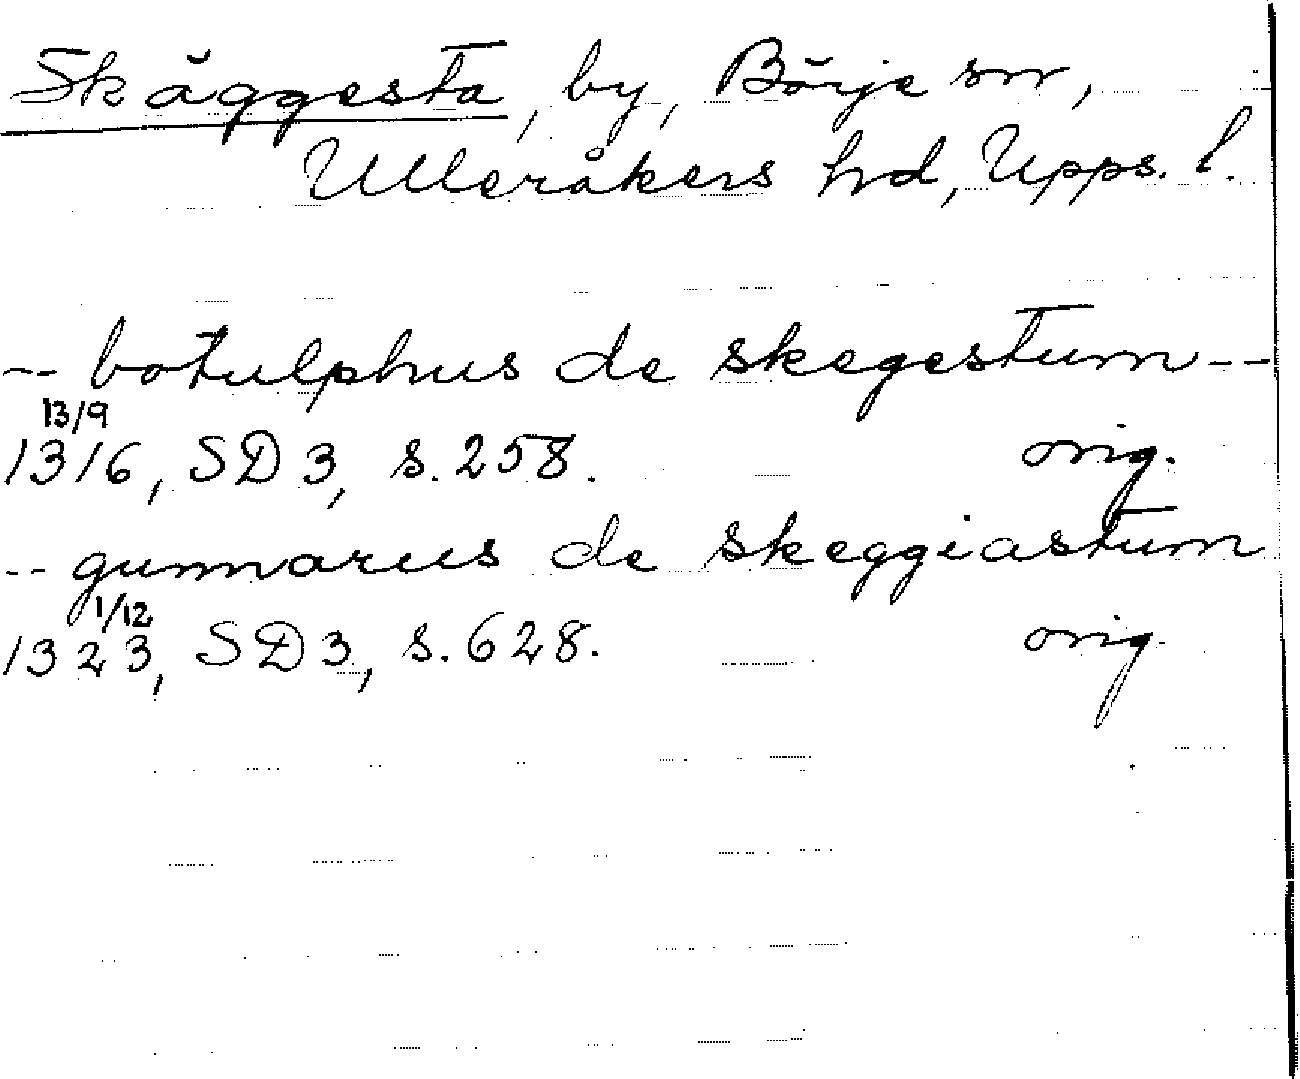 Skäggesta, by, Börje sn,
Ulleråkers hd, Upps. l.
-- botulphus de skegestum --
13/9
1316, SD 3, s. 258. orig.
-- gunnarus de skeggiastum
1/12
1323, SD 3, s. 628. orig.